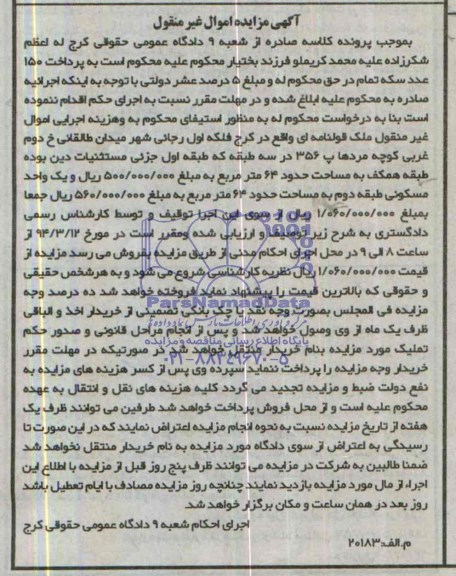 آگهی مزایده اموال غیر منقول
بموجب پرونده کلاسه صادره از شعبه ۹ دادگاه عمومی حقوقی کرج له اعظم
شکرزاده علیه محمد کریملو فرزند بختیار محکوم علیه محکوم است به پرداخت ۱۵۰
عدد سکه تمام در حق محکوم له و مبلغ ۵ درصد عشر دولتی با توجه به اینکه اجرائیه
صادره به محکوم علیه ابلاغ شده و در مهلت مقرر نسبت به اجرای حکم اقدام ننموده
است بنا به درخواست محکوم له به منظور استیفای محکوم به وهزینه اجرایی اموال
غیر منقول ملک قولنامه ای واقع در کرج فلکه اول رجائی شهر میدان طالقانی خ دوم
غربی کوچه مردها پ ۳۵۶ در سه طبقه که طبقه اول جزئی مستثنیات دین بوده
طبقه همکف به مساحت حدود ۶۴ متر مربع به مبلغ ۵۰۰/۰۰۰/۰۰۰ ریال و یک واحد
مسکونی طبقه دوم به مساحت حدود ۶۴ متر مربع به مبلغ ۵۶۰/۰۰۰/۰۰۰ ریال جمعا
بمبلغ ۱/۰۶۰/۰۰۰/۰۰۰ ریال از سوی این اجرا توقیف و توسط کارشناس رسمی
دادگستری به شرح زیر توصیف و ارزیابی شده ومقرر است در مورخ ۹۴/۳/۱۲ از
ساعت ۸ الی ۹ در محل اجرای احکام مدنی از طریق مزایده بفروش می رسد مزایده از
قیمت ۱/۰۶۰/۰۰۰/۰۰۰ ریال نظریه کارشناسی شروع می شود و به هرشخص حقیقی
و حقوقی که بالاترین قیمت را پیشنهاد نماید فروخته خواهد شد ده درصد وجه
مزایده فی المجلس بصورت وجه نقد یا چک بانکی تضمینی از خریدار اخذ و الباقی
ظرف یک ماه از وی وصول خواهد شد و پس از انجام مراحل قانونی و صدور حکم
تملیک مورد مزایده بنام خریدار منتقل خواهد شد در صورتیکه در مهلت مقرر
خریدار وجه مزایده را پرداخت ننماید سپرده وی پس از کسر هزینه های مزایده به
نفع دولت ضبط و مزایده تجدید می گردد کلیه هزینه های نقل و انتقال به عهده
محکوم علیه است و از محل فروش پرداخت خواهد شد طرفین می توانند ظرف یک
هفته از تاریخ مزایده نسبت به نحوه انجام مزایده اعتراض نمایند که در این صورت تا
رسیدگی به اعتراض از سوی دادگاه مورد مزایده به نام خریدار منتقل نخواهد شد
ضمنا طالبین به شرکت در مزایده می توانند ظرف پنج روز قبل از مزایده با اطلاع این
اجراء از مال مورد مزایده بازدید نمایند چنانچه روز مزایده مصادف با ایام تعطیل باشد
روز بعد در همان ساعت و مکان برگزار خواهد شد.
اجرای احکام شعبه ۹ دادگاه عمومی حقوقی کرج
م.الف:۲۰۱۸۳
ParsNamadData
پایگاه اطلاع رسانی مناقصه و مزایده
۰۲۱-۸۸۳۴۹۶۷۰-۵